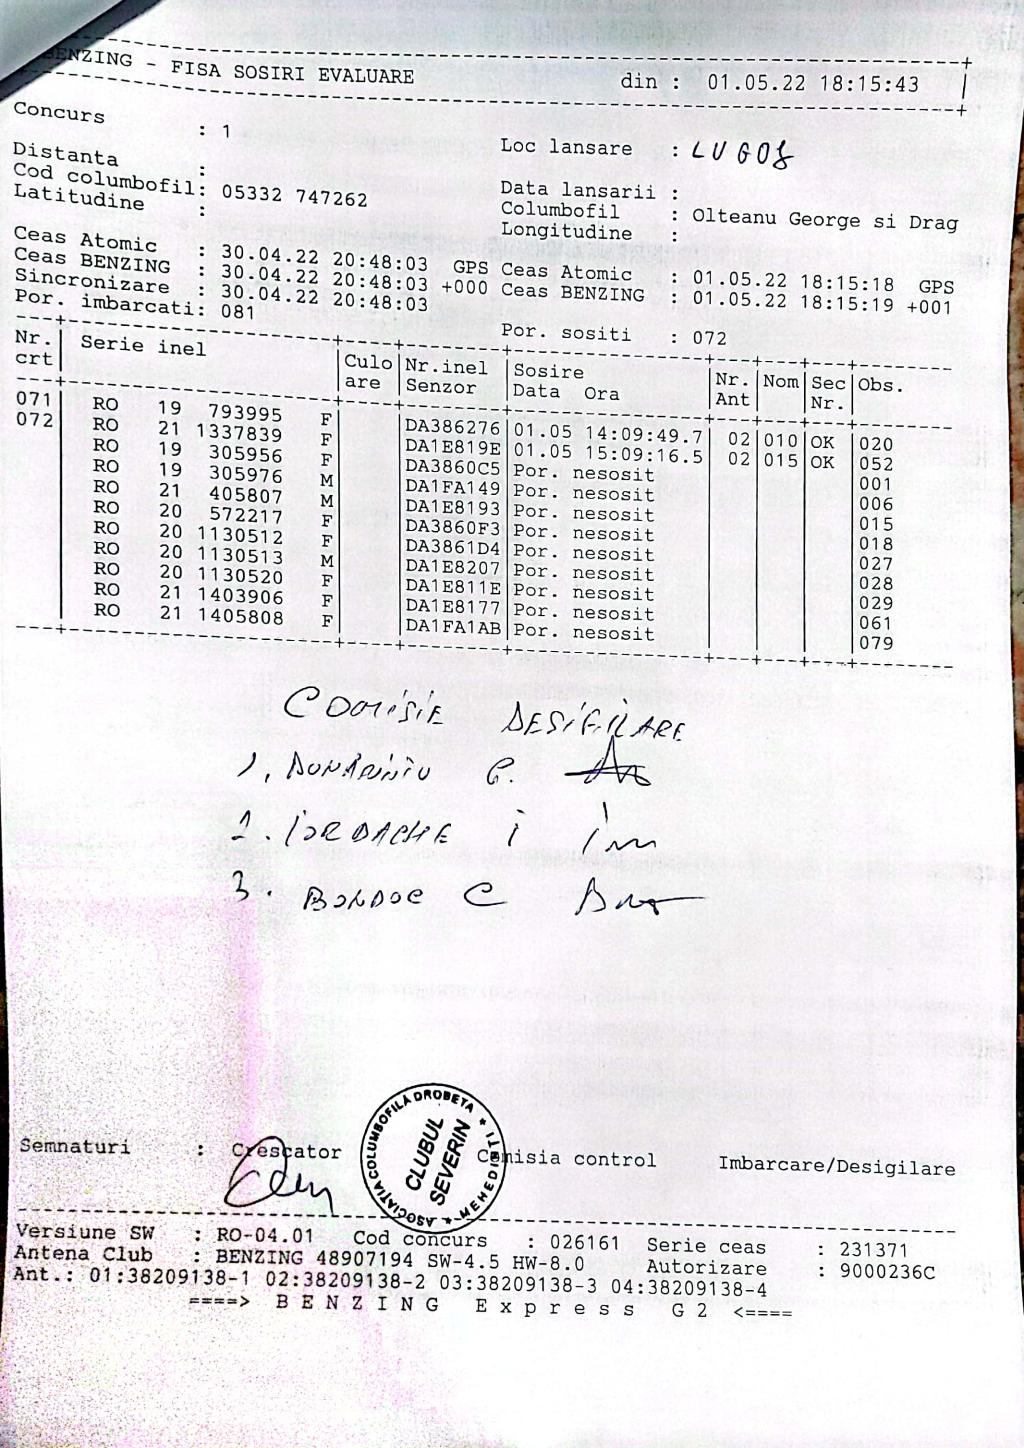 BENZING - FISA SOSIRI EVALUARE din : 01.05.22 18:15:43
Concurs : 1 Loc lansare : LUGOJ
Distanta : Data lansarii :
Cod columbofil: 05332 747262 Columbofil : Olteanu George si Drag
Latitudine : Longitudine :
Ceas Atomic : 30.04.22 20:48:03 GPS Ceas Atomic : 01.05.22 18:15:18 GPS
Ceas BENZING : 30.04.22 20:48:03 +000 Ceas BENZING : 01.05.22 18:15:19 +001
Sincronizare : 30.04.22 20:48:03
Por. imbarcati: 081 Por. sositi : 072
Nr. Serie inel Culo Nr.inel Sosire Nr. Nom Sec Obs.
crt are Senzor Data Ora Ant Nr.
071 RO 19 793995 F DA386276 01.05 14:09:49.7 02 010 OK 020
072 RO 21 1337839 F DA1E819E 01.05 15:09:16.5 02 015 OK 052
RO 19 305956 F DA3860C5 Por. nesosit 001
RO 19 305976 M DA1FA149 Por. nesosit 006
RO 21 405807 M DA1E8193 Por. nesosit 015
RO 20 572217 F DA3860F3 Por. nesosit 018
RO 20 1130512 F DA3861D4 Por. nesosit 027
RO 20 1130513 M DA1E8207 Por. nesosit 028
RO 20 1130520 F DA1E811E Por. nesosit 029
RO 21 1403906 F DA1E8177 Por. nesosit 061
RO 21 1405808 F DA1FA1AB Por. nesosit 079
COMISIE DESIGILARE
1. G.
2. IORDACHE I
3. BONDOC C
ASOCIAȚIA COLUMBOFILĂ DROBETA * MEHEDINȚI *
CLUBUL
SEVERIN
Semnaturi : Crescator Comisia control Imbarcare/Desigilare
Versiune SW : RO-04.01 Cod concurs : 026161 Serie ceas : 231371
Antena Club : BENZING 48907194 SW-4.5 HW-8.0 Autorizare : 9000236C
Ant.: 01:38209138-1 02:38209138-2 03:38209138-3 04:38209138-4
====> B E N Z I N G E x p r e s s G 2 <====